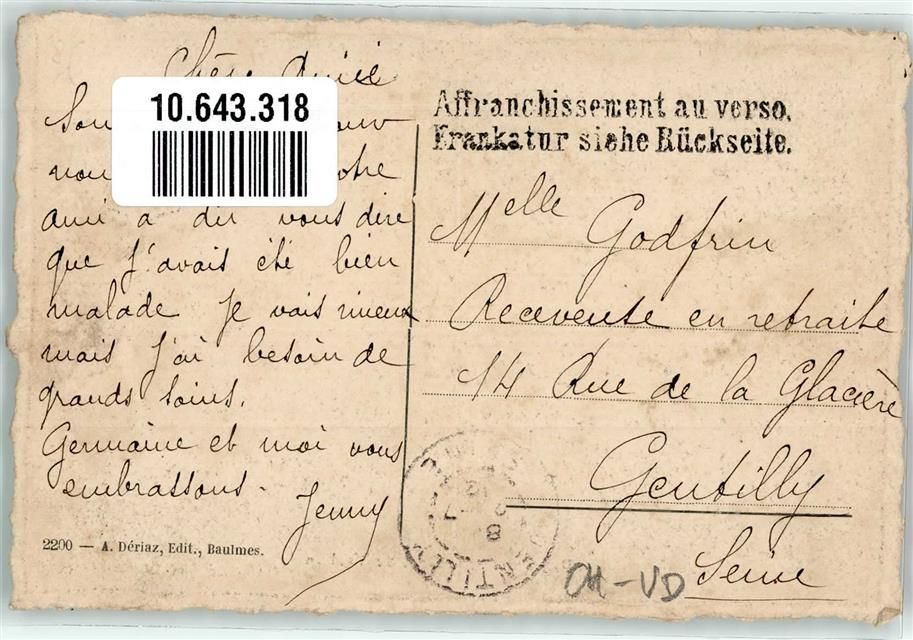 Chère Amie
10.643.318
nou otre
ami a dû vous dire
que j'avais été bien
malade Je vais mieux
mais j'ai besoin de
grands soins.
Germaine et moi vous
embrassons.
Jenny
2200 — A. Dériaz, Edit., Baulmes.
Affranchissement au verso.
Frankatur siehe Rückseite.
Melle Godfrin
Receveuse en retraite
14 Rue de la Glacière
Gentilly
Seine
GENTILLY
CH-VD